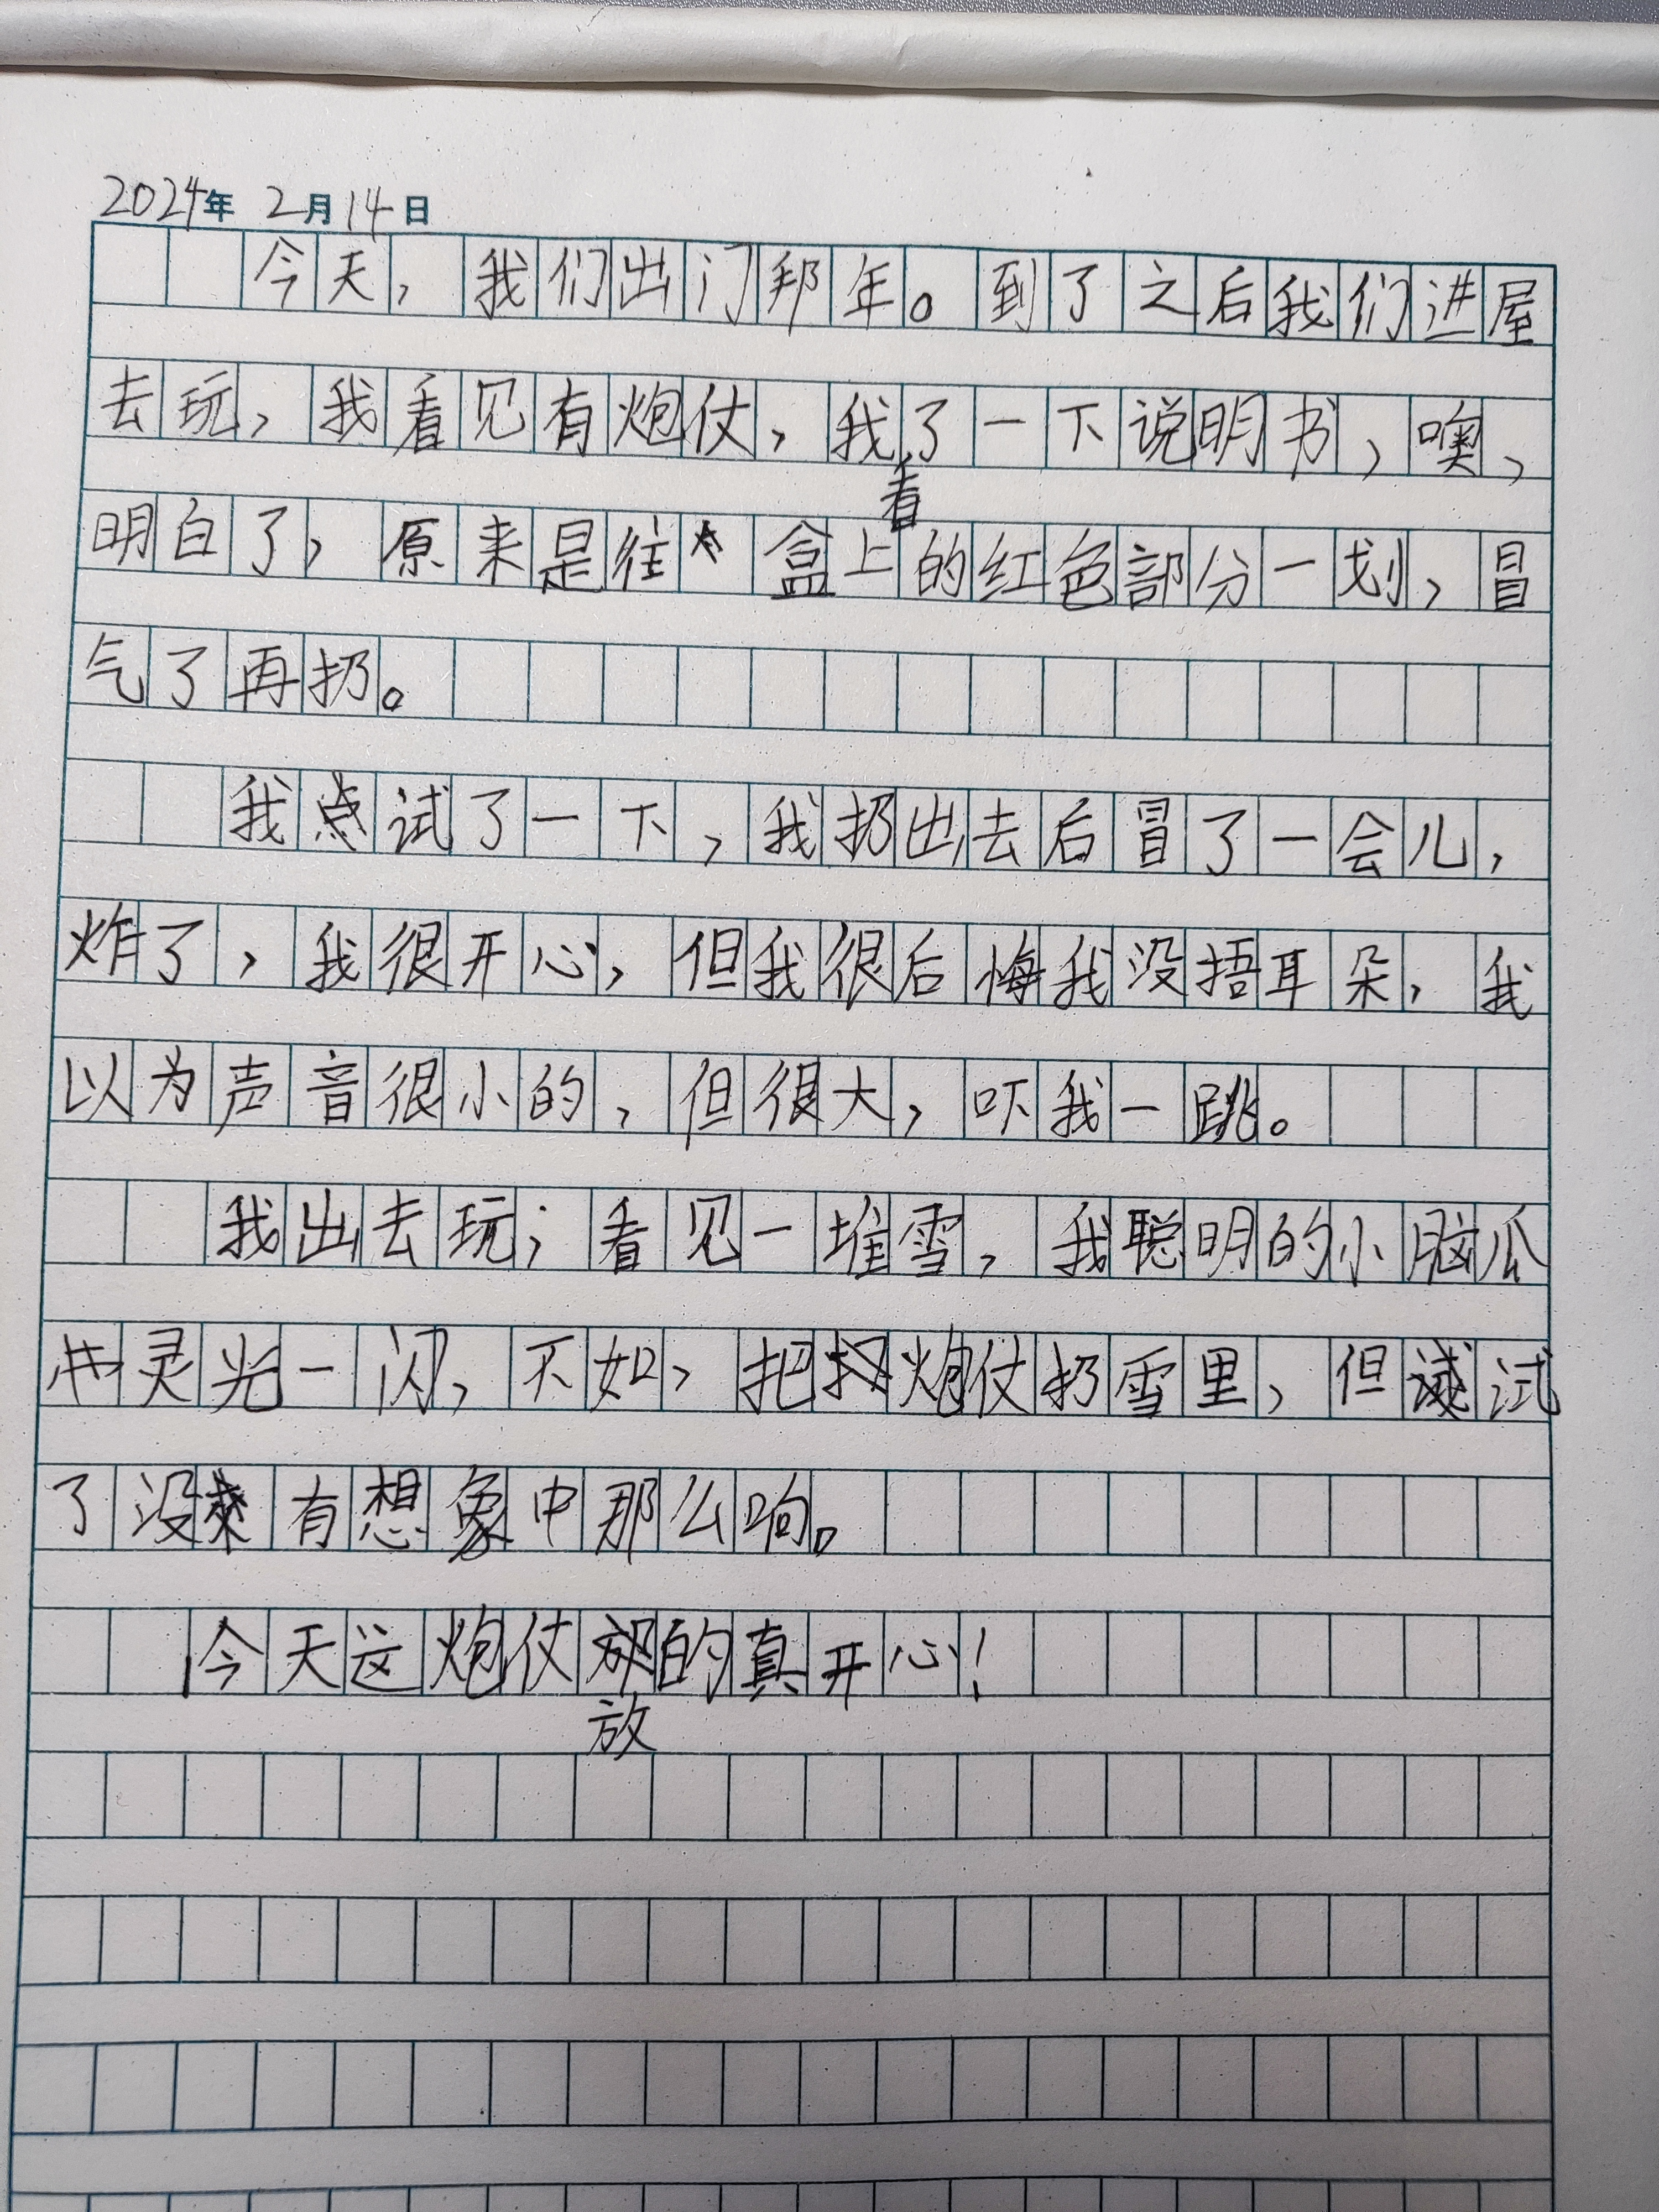 2024年 2月14日
今天，我们出门邦年。到了之后我们进屋
去玩，我看见有炮仗，我看了一下说明书，噢，
明白了，原来是往盒上的红色部分一划，冒
气了再扔。
我试了一下，我扔出去后冒了一会儿，
炸了，我很开心，但我很后悔我没捂耳朵，我
以为声音很小的，但很大，吓我一跳。
我出去玩；看见一堆雪，我聪明的小脑瓜
灵光一闪，不如，把炮仗扔雪里，但试
了没有想象中那么响。
今天这炮仗放的真开心！